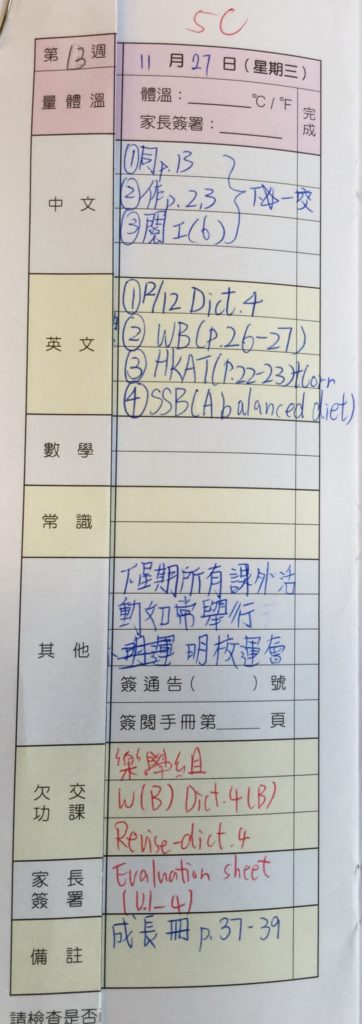 5C
第13週 11月27日(星期三)
量體溫 體溫：______°C / °F 完成
家長簽署：______
中文 ①同p.13
②作p.2,3 下一交
③閱工(6)
英文 ①2/12 Dict.4
② WB(P.26-27)
③ HKAT(P.22-23)+Corr
④SSB(A balanced diet)
數學
常識
其他 下星期所有課外活
動如常舉行
明校運會
簽通告( )號
簽閱手冊第____頁
欠交功課 樂學組
W(B) Dict.4(B)
Revise-dict.4
家長簽署 Evaluation sheet
(U.1-4)
備註 成長冊 p.37-39
請檢查是否